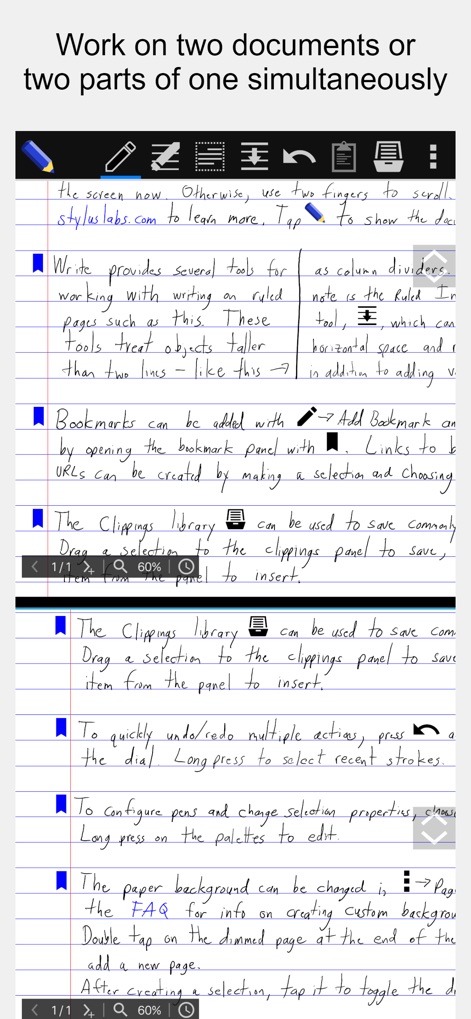 Work on two documents or
two parts of one simultaneously
the screen now. Otherwise, use two fingers to scroll.
styluslabs.com to learn more. Tap to show the doc
Write provides several tools for
working with writing on ruled
pages such as this. These
tools treat objects taller
than two lines – like this →
as column dividers.
note is the Ruled In
tool, , which can
horizontal space and
in addition to adding v
Bookmarks can be added with → Add Bookmark an
by opening the bookmark panel with . Links to b
URLs can be created by making a selection and choosing
The Clippings library can be used to save commonly
Drag a selection to the clippings panel to save,
item from the panel to insert.
1/1 60%
The Clippings library can be used to save com
Drag a selection to the clippings panel to save
item from the panel to insert.
To quickly undo/redo multiple actions, press a
the dial. Long press to select recent strokes.
To configure pens and change selection properties, choose
Long press on the palettes to edit.
The paper background can be changed in → Pag
the FAQ for info on creating custom backgrou
Double tap on the dimmed page at the end of the
add a new page.
After creating a selection, tap it to toggle the d
1/1 60%